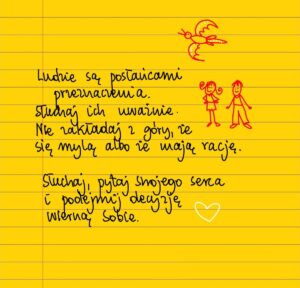 Ludzie są posłańcami
przeznaczenia.
Słuchaj ich uważnie.
Nie zakładaj z góry, że
się mylą albo że mają rację.
Słuchaj, pytaj swojego serca
i podejmij decyzję
wierną sobie.